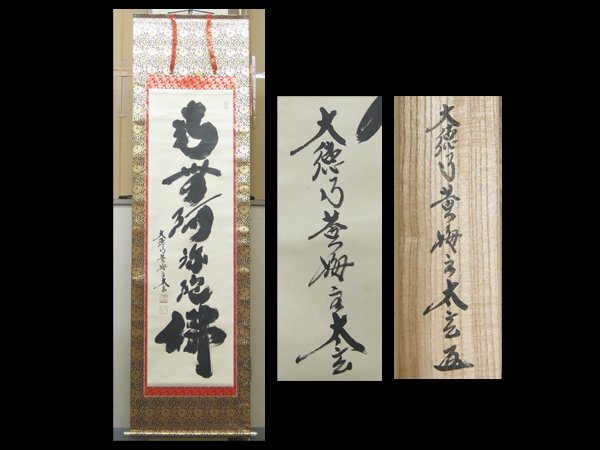 南無阿弥陀佛
大徳寺黄梅主太玄
大徳寺黄梅主太玄
大徳寺黄梅主太玄